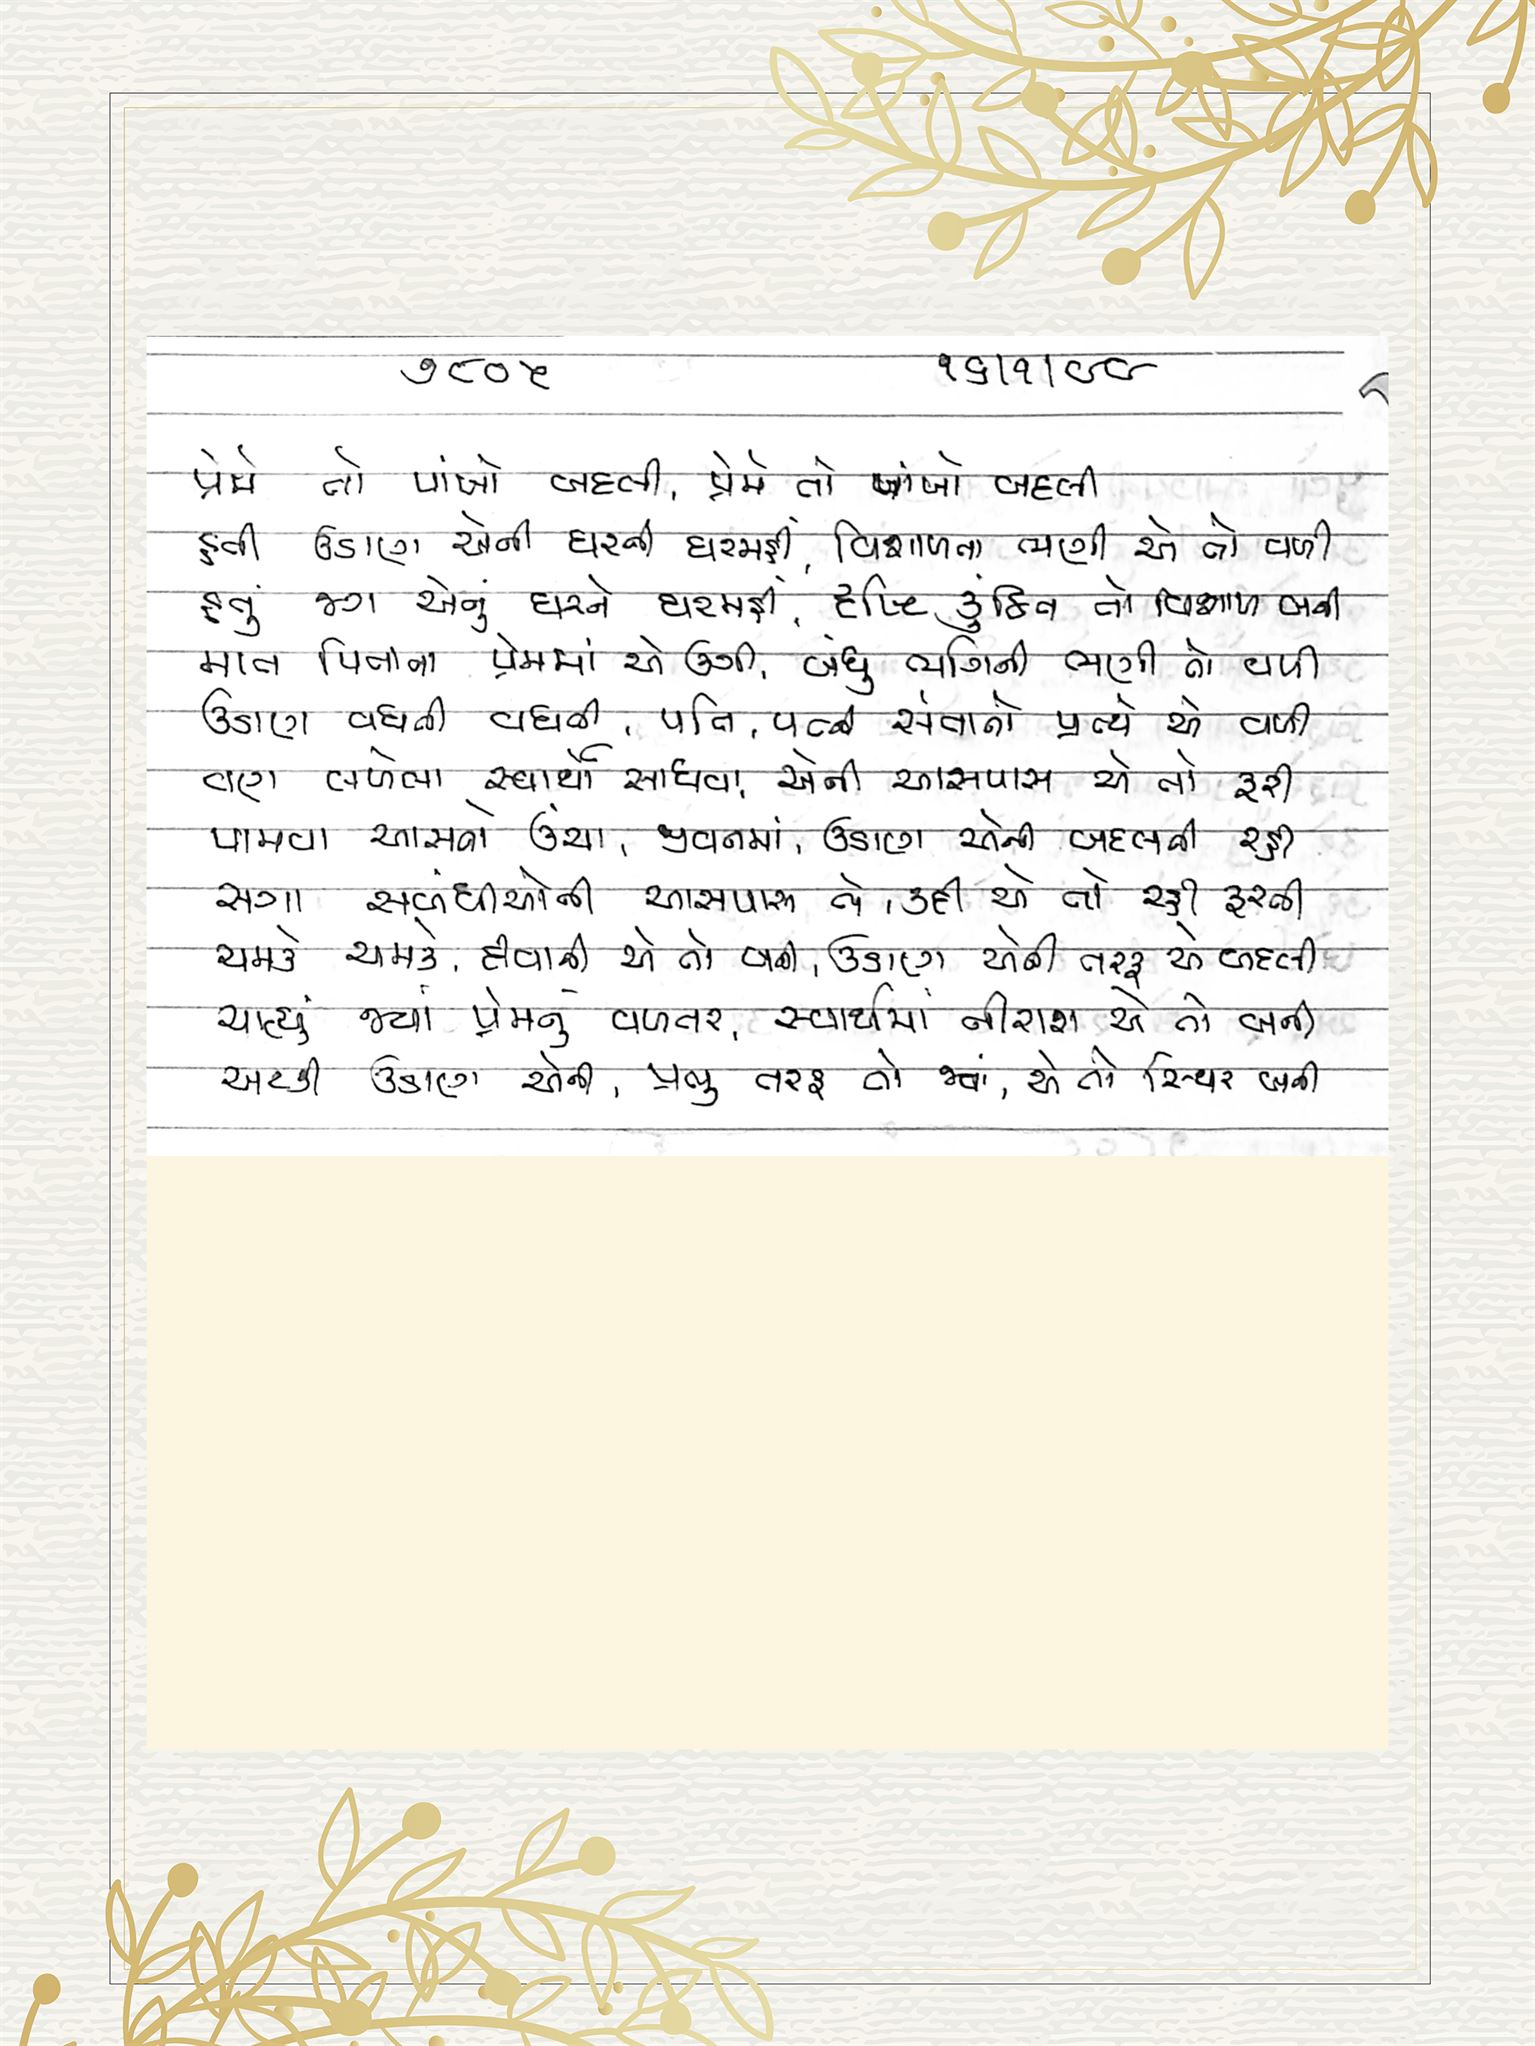 ૭૮૦૫ ૧૬/૧/૯૯
પ્રેમે તો પાંખો બદલી, પ્રેમે તો પાંખો બદલી
હતી ઉડાણ એની ઘરની ઘરમહીં, વિશાળતા ભણી એ તો વળી
હતું જગ એનું ઘરને ઘરમહીં, દૃષ્ટિ કુંઠિત તો વિશાળ બની
માત પિતાના પ્રેમમાં એ ઉગી, બંધુ ભગિની ભણી તો વળી
ઉડાણ વધતી વધતી, પતિ, પત્ની સંતાનો પ્રત્યે એ વળી
વણ લખેલા સ્વાર્થો સાધવા, એની આસપાસ એ તો ફરી
પામવા આસનો ઉંચા, જીવનમાં, ઉડાણ એની બદલતી રહી
સગા સબંધીઓની આસપાસ તે, ઉડી એ તો રહી ફરતી
ચમકે ચમકે, દીવાની એ તો બની, ઉડાણ એની તરફ એ બદલી
ચાલ્યું જ્યાં પ્રેમનું વળતર, સ્વાર્થમાં નીરાશ એ તો બની
અટકી ઉડાણ એની, પ્રભુ તરફ તો જ્યાં, એ તો સ્થિર બની